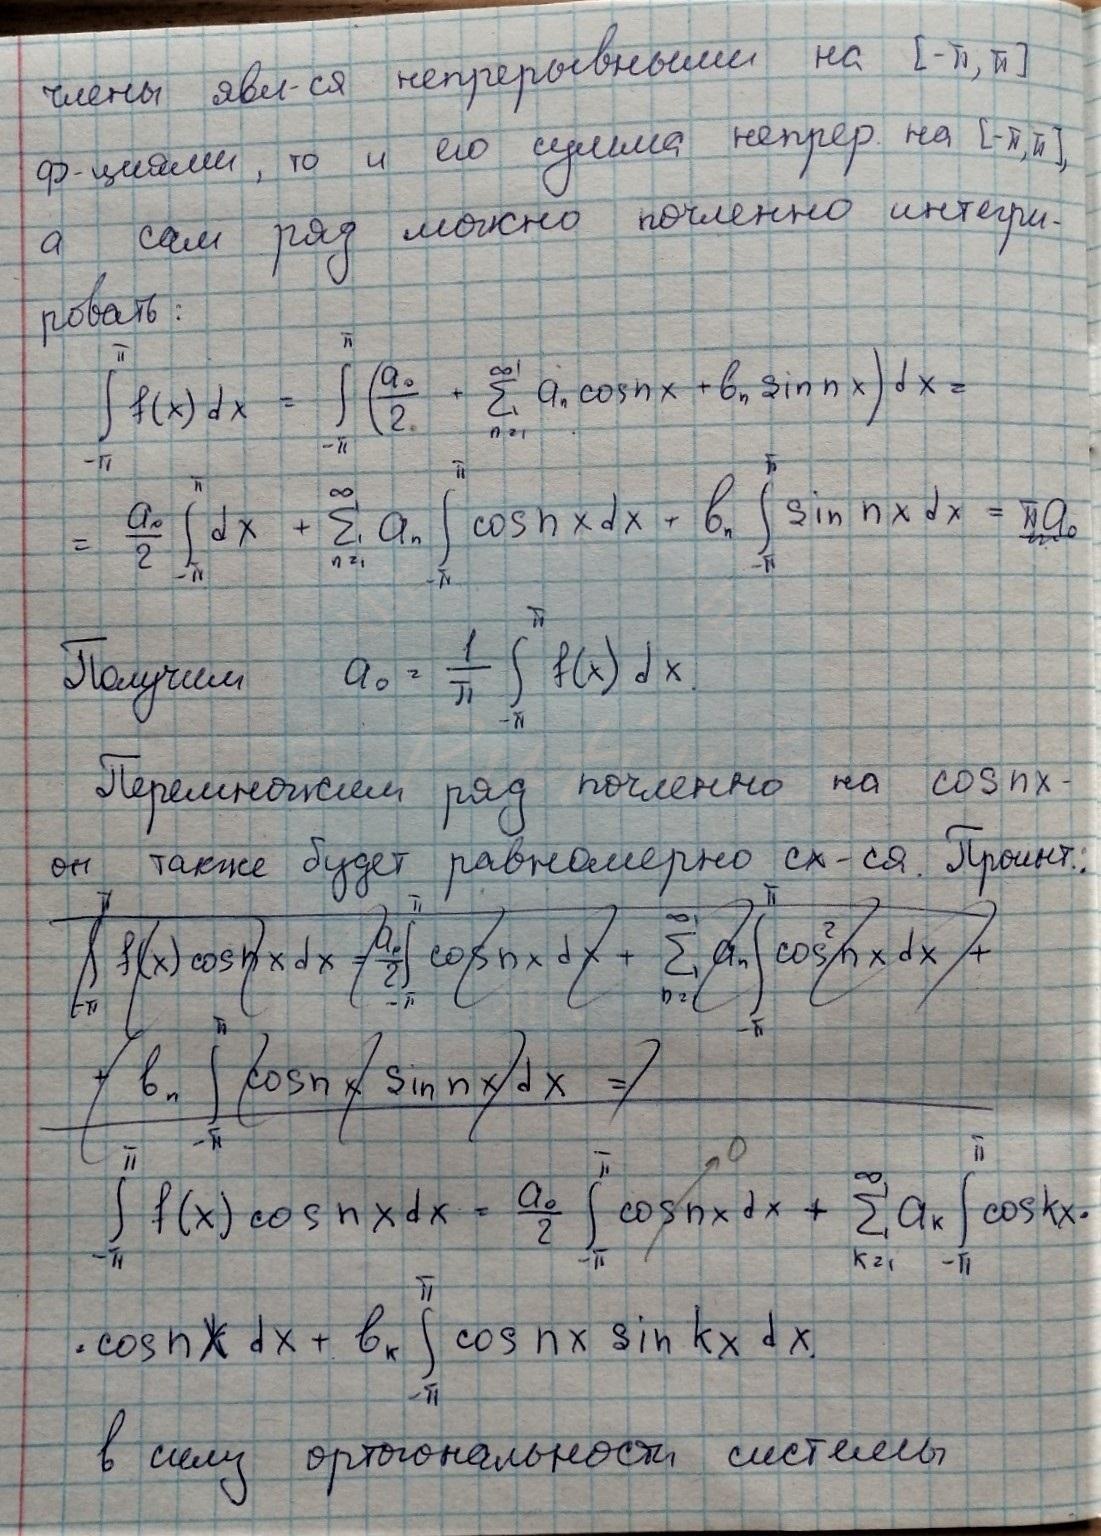 члены явл-ся непрерывными на [-π, π]
ф-циями, то и его сумма непрер. на [-π, π],
а сам ряд можно почленно интегри-
ровать:
∫_{-π}^{π} f(x) dx = ∫_{-π}^{π} (a₀/2 + ∑_{n=1}^{∞} aₙ cos nx + bₙ sin nx) dx =
= a₀/2 ∫_{-π}^{π} dx + ∑_{n=1}^{∞} aₙ ∫_{-π}^{π} cos nx dx + bₙ ∫_{-π}^{π} sin nx dx = πa₀
Получим a₀ = 1/π ∫_{-π}^{π} f(x) dx.
Перемножим ряд почленно на cos nx -
он также будет равномерно сх-ся. Проинт.:
∫_{-π}^{π} f(x) cos nx dx = a₀/2 ∫_{-π}^{π} cos nx dx + ∑_{n=1}^{∞} aₙ ∫_{-π}^{π} cos² nx dx +
+ bₙ ∫_{-π}^{π} cos nx sin nx dx =
∫_{-π}^{π} f(x) cos nx dx = a₀/2 ∫_{-π}^{π} cos nx dx → 0 + ∑_{k=1}^{∞} aₖ ∫_{-π}^{π} cos kx ·
· cos nx dx + bₖ ∫_{-π}^{π} cos nx sin kx dx.
В силу ортогональности системы